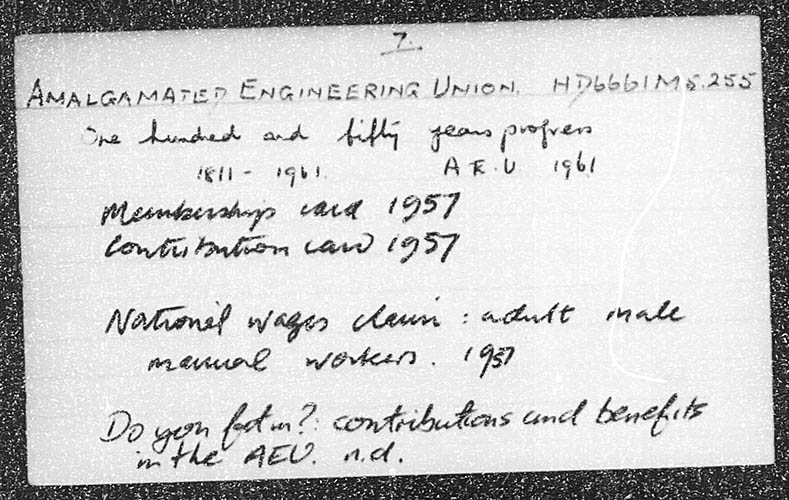 7.
AMALGAMATED ENGINEERING UNION. HD6661M5.255
One hundred and fifty years progress
1811 - 1961. A.E.U. 1961
Membership card 1957
Contribution card 1957
National wages claim : adult male
manual workers. 1957
Do you fit in?: contributions and benefits
in the AEU. n.d.